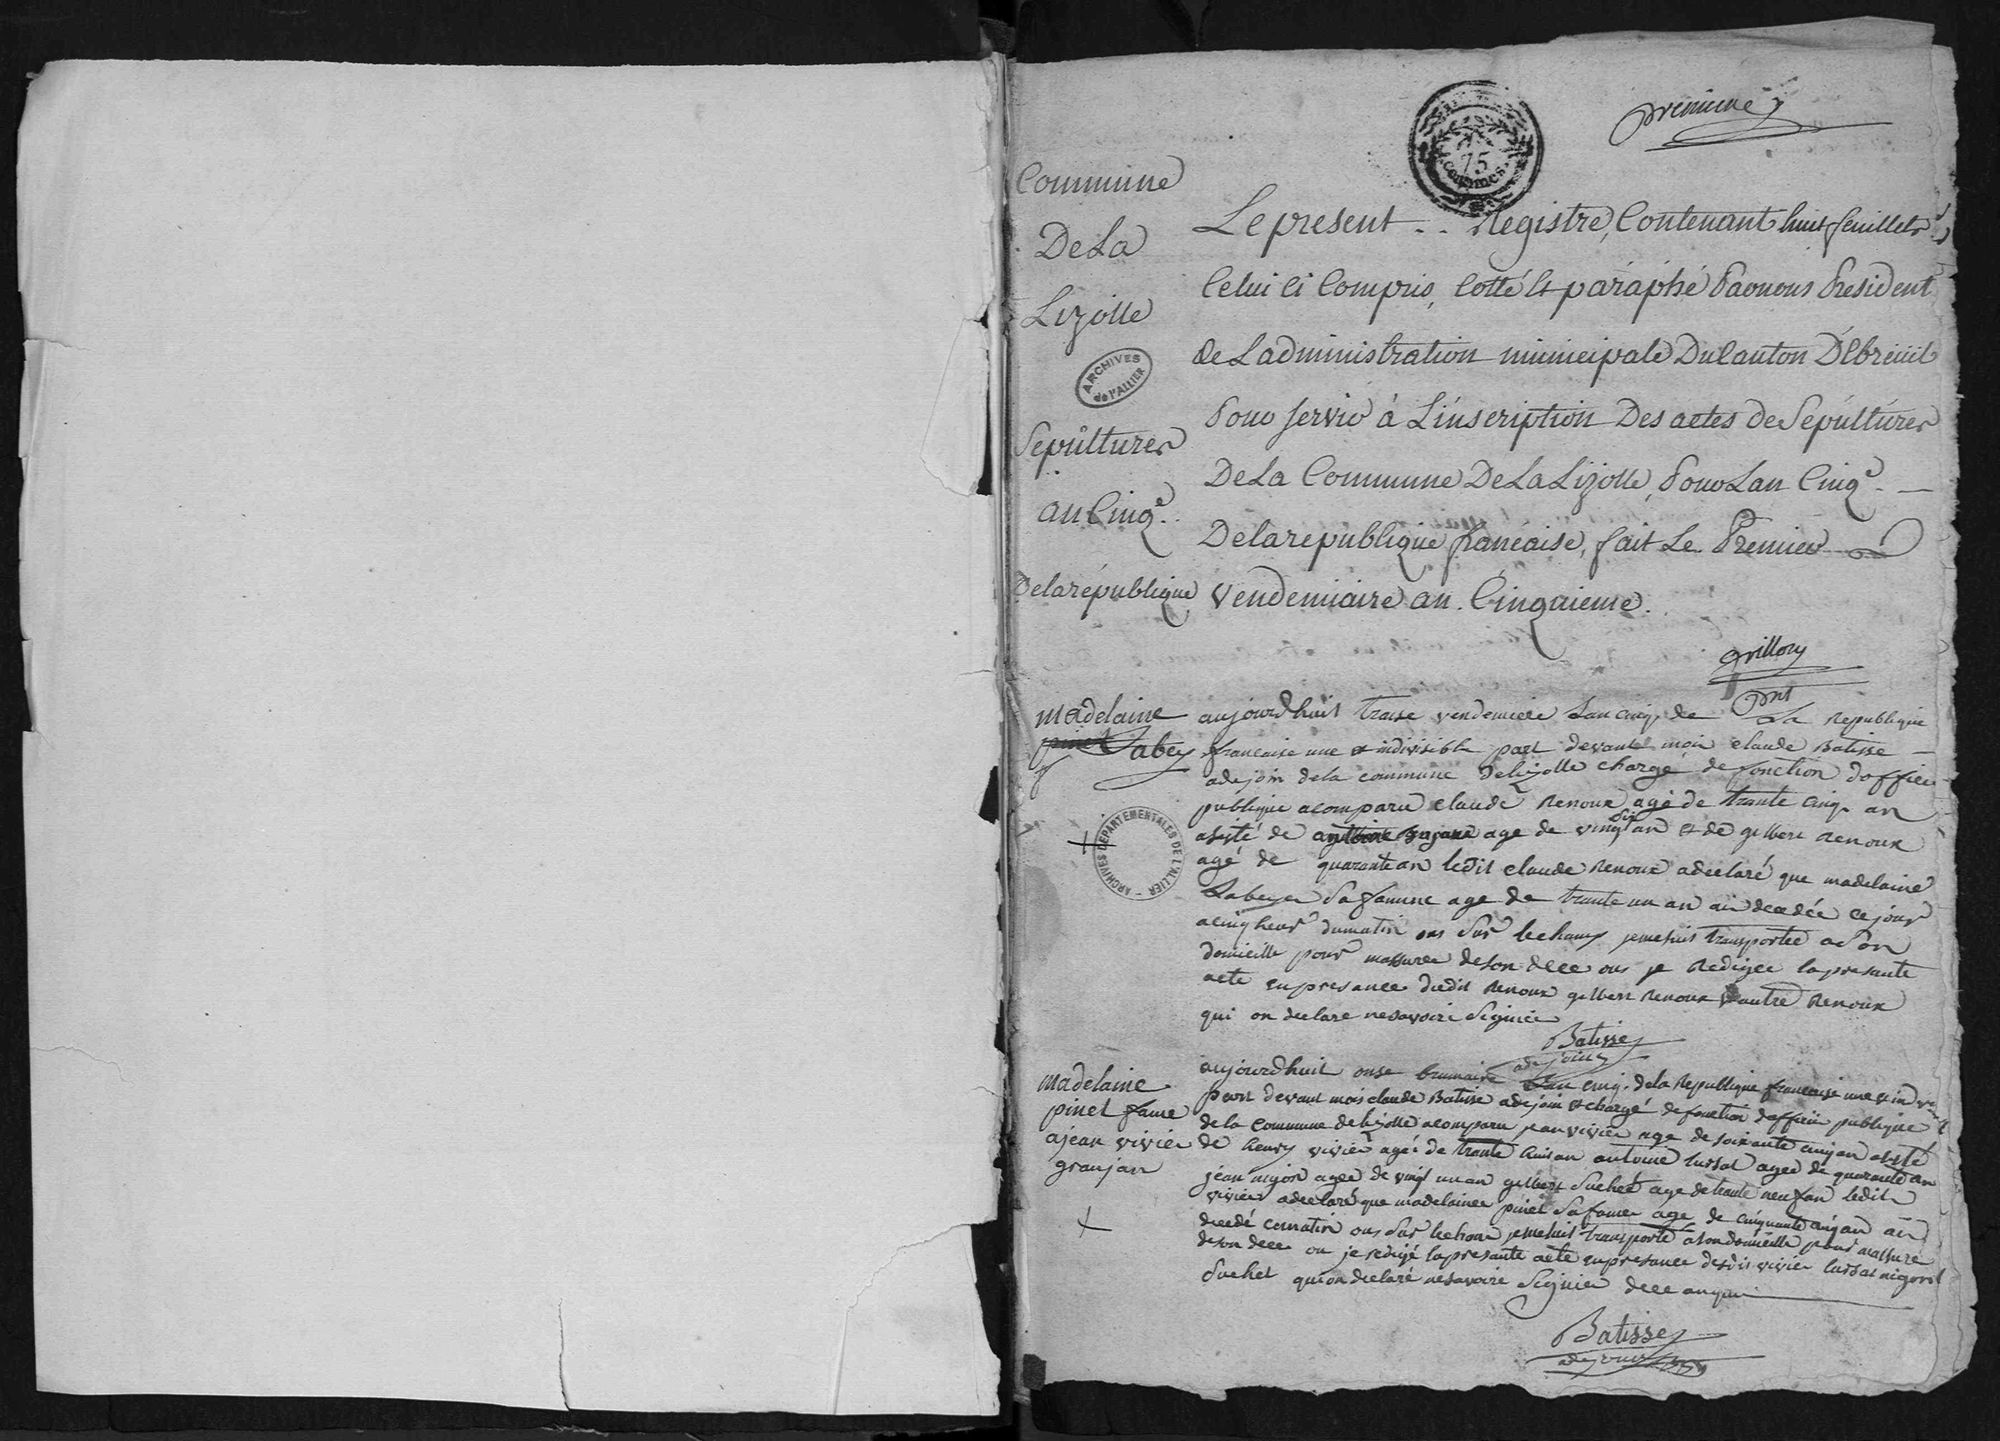 premiere
75
centimes
Commune
De La
Lizolle
ARCHIVES
de l'ALLIER
Sepûltures
an Cinq.e
De la république
Le present .. Registre, Contenant huit feuillets
Celui Ci Compris, Cotté & paraphé Par nous President
de L'administration municipale Du Canton D'Ebreuil
Pour Servir à L'inscription Des actes de Sépultures
De La Commune De La Lizolle, Pour Lan Cinq.e
De la republique francaise, fait Le Premier
Vendemiaire an Cinquieme.
Grillon
Pnt
madelaine
pinet Labey
ARCHIVES DEPARTEMENTALES DE L'ALLIER
aujourdhuit traise vendemiere Lan cinq. de La Republique
francaise une et indivisible part devant moi claude Batisse
adejoin de la commune Delizolle chargé de fonction dofficié
publique acomparu claude Renoux agé de trante cinq an
asité de antoine age de vingt six an et de gilbert Renoux
agé de quarante an ledit claude Renoux adeclaré que madelaine
Labeye Sa famme age de trante un an aii decedée ce jour
a cinq heur dumatin ons Sur lechamp jemesuis transportée a Son
domicille pour massurer deson decc ons je Redigee lapresante
acte enpresance dudit Renoux gilbert Renoux autre Renoux
qui on declare nesavoire Signiée
Batisse
adejoint
madelaine
pinet fame
ajean vivier
granjan
aujourdhuit onse brumaire Lan cinq. dela Republique francaise une et indi
part devant mois claude Batisse adejoin et chargé de fonction dofficié publique
de la commune delizolle acomparu jean vivier age de soixante cinq an asisté
de henry vivier agé de trante huis an antoine lussat agee de quarante an
jean nigon agee de vingt un an gilbert Suchet age de trante neuf an ledit
vivier adeclaré que madelainee pinet Sa famee age de cinquante cinq an aii
decedé cematin ons Sur lecham jemesuis transporté a son domicille pour massuré
deson decc ou je redigé lapresante acte enpresance desdis vivier lussat nigon
Suchet quion declaré nesavoire Signier decc anque
Batisse
adejoint